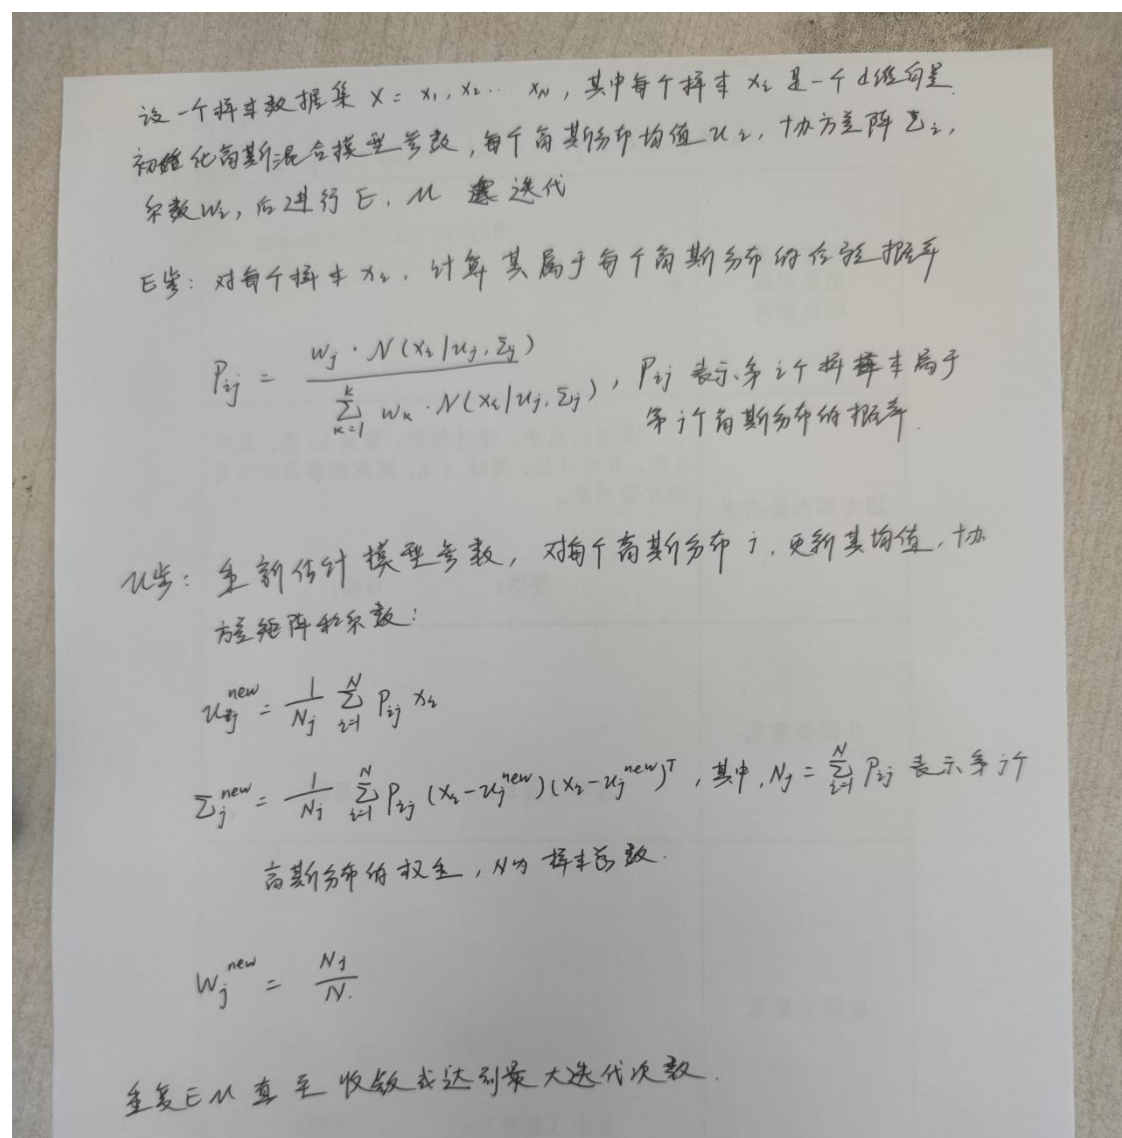 设一个样本数据集 X = x₁, x₂ ... x_N, 其中每个样本 xᵢ 是一个 d维向量.
初始化高斯混合模型参数, 每个高斯分布均值 uᵢ, 协方差阵 Σᵢ,
系数wᵢ, 后进行 E, M 迭代
E步: 对每个样本 xᵢ, 计算其属于每个高斯分布的后验概率
P_ij = w_j · N(xᵢ|u_j, Σ_j) / ∑_{k=1}^{k} w_k · N(xᵢ|u_j, Σ_j), P_ij 表示第 i 个样本属于
第 j 个高斯分布的概率.
M步: 重新估计模型参数, 对每个高斯分布 j, 更新其均值, 协
方差矩阵和系数:
u_j^new = 1/N_j ∑_{i=1}^{N} P_ij xᵢ
Σ_j^new = 1/N_j ∑_{i=1}^{N} P_ij (xᵢ - u_j^new)(xᵢ - u_j^new)^T, 其中, N_j = ∑_{i=1}^{N} P_ij 表示第 j 个
高斯分布的权重, N为样本总数.
W_j^new = N_j / N.
重复E M 直至收敛或达到最大迭代次数.